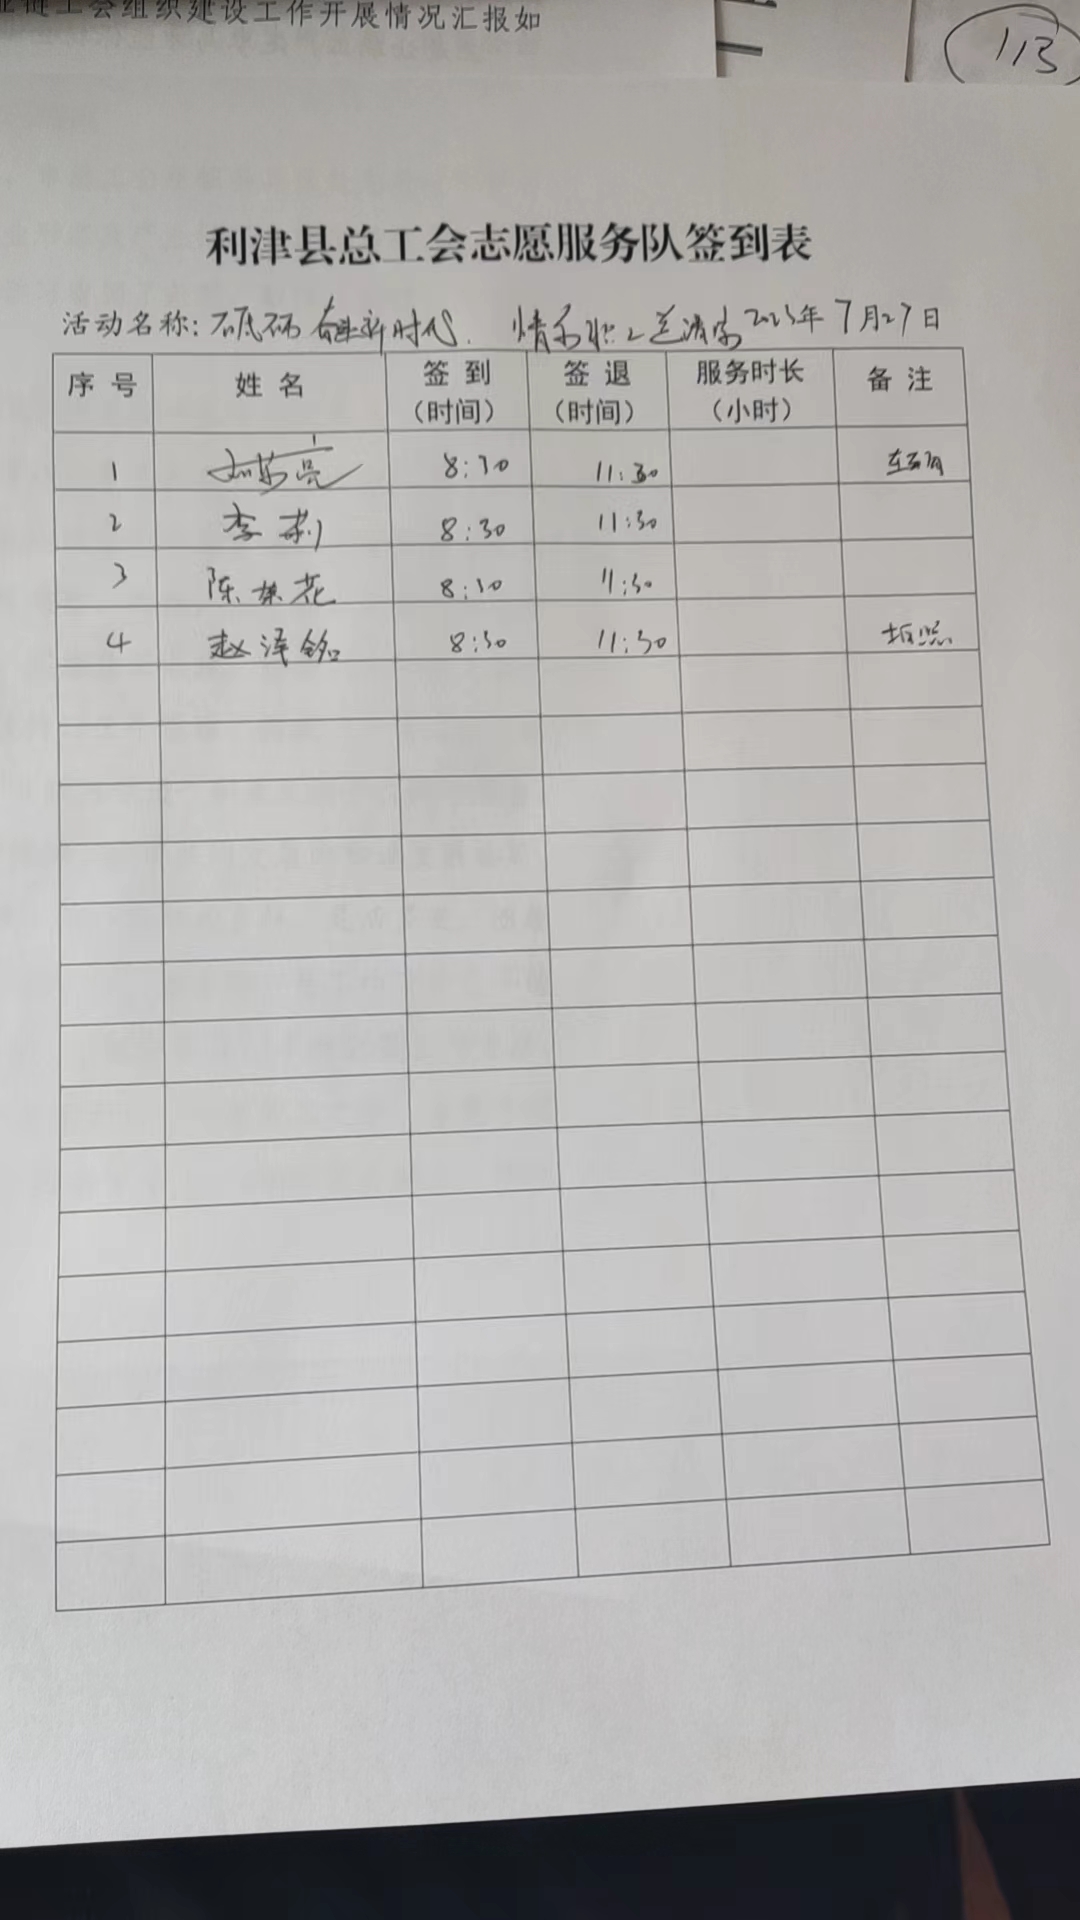 业链工会组织建设工作开展情况汇报如
113
利津县总工会志愿服务队签到表
活动名称: 砥砺奋进新时代. 情系职工送清凉 2023年 7月27日
序号 姓名 签到(时间) 签退(时间) 服务时长(小时) 备注
1 亮 8:30 11:30
2 李莉 8:30 11:30
3 陈 花 8:30 11:30
4 赵泽铭 8:30 11:30 拍照